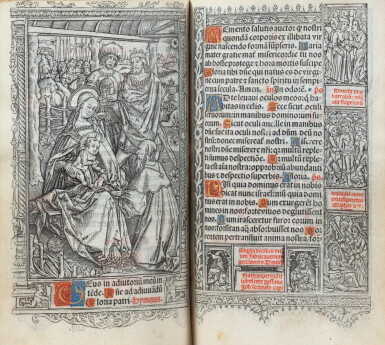 Eus in adiutoriũ meũ in
tẽde. Dñe ad adiuuãdũ
Gloria patri. Hymnus.
Memento salutis auctor q̃ nostri
quondã corporis ex illibata vir
gine nascendo formã sũpseris. Maria
mater gratie mater misericordie tu nos
ab hoste protege et hora mortis suscipe
Gloria tibi dñe qui natus es de virgi
ne cum patre et sancto spiritu in sempi
terna secula. Amen. añ. In odorẽ. ps.
Ad te leuaui oculos meos: q̃ ha
bitas in celis. Ecce sicut oculi
seruorum: in manibus dominorum su
orum. Sicut oculi ancille in manibus
dñe sue: ita oculi nostri ad dñm deũ no
strũ: donec misereat nostri. Miserere
nostri dñe miserere nr̃i: q̃ multũ reple
ti sumus despectiõe. Quia multũ reple
ta est aĩa nostra: opprobriũ abundanti
bus et despectio superbis. Gloria. ps
Nisi quia dominus erat in nobis
dicat nunc israel: nisi quia domi
nus erat in nobis. Cum exurgerẽt ho
mines in nos: forte viuos deglutissent
nos. Cum irasceretur furor eorum in
nos: forsitan aq̃ absorbuisset nos. Tor
rentem pertransiuit anima nostra: for